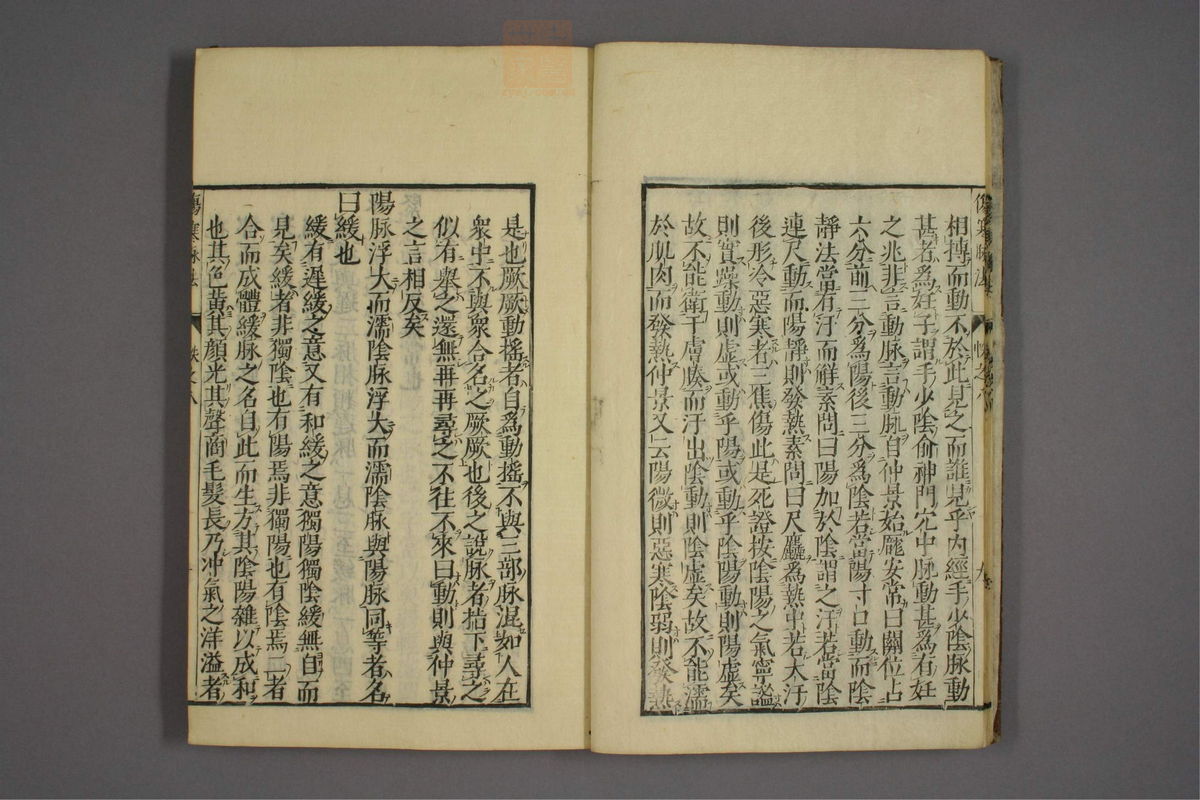 相搏而動不於此見之而誰見乎內經手少陰脉動
甚者爲妊子謂手少陰俞神門穴中脉動甚爲有妊
之兆非言動脉言動脉自仲景始龐安常曰關位占
六分前三分爲陽後三分爲陰若當陽寸口動而陰
靜法當有汗而觧素問曰陽加於陰謂之汗若當陰
連尺動而陽靜則發熱素問曰尺麤爲熱中若大汗
後形冷惡寒者三焦傷此是死證按陰陽之氣寧謐
則實躁動則虛或動乎陽或動乎陰陽動則陽虛矣
故不能衛于膚腠而汗出陰動則陰虛矣故不能濡
於肌肉而發熱仲景又云陽微則惡寒陰弱則發熱
是也厥厥動搖者自爲動搖不與三部脉混如人在
衆中不與衆合名之厥厥也後之說脉者指下尋之
似有舉之還無再再尋之不往不來曰動則與仲景
之言相反矣
陽脉浮大而濡陰脉浮大而濡陰脉與陽脉同等者名
曰緩也
緩有遲緩之意又有和緩之意獨陽獨陰緩無自而
見矣緩者非獨陰也有陽焉非獨陽也有陰焉二者
合而成體緩脉之名自此而生方其陰陽雜以成和
也其色黃其顏光其聲商毛髮長乃冲氣之洋溢者